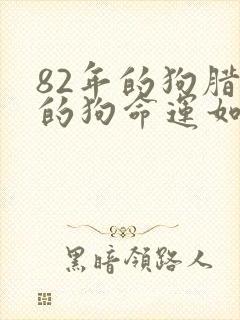 82年的狗腊
的狗命運如
黑暗領路人